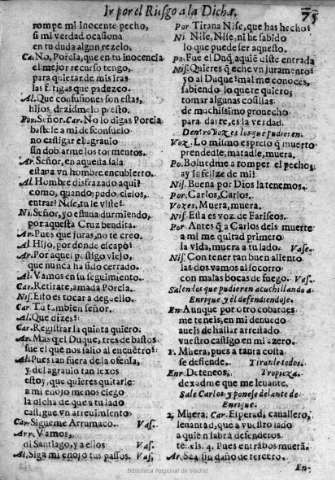 Ir por el Riesgo a la Dicha,
75
rompe mi inocente pecho,
si mi verdad ocasiona
en tu duda algun rezelo.
Ca. No, Porcia, que en tu inocencia
el mejor recurso tengo,
para quietar de mis iras
las fatigas que padezco.
Al. Que confusiones son estas,
hijos, dezidme lo presto.
Por. Señor. Car. No lo digas Porcia
baste le a mi desconsuelo
no castigar el agravio
sin dobrar nos los tormentos.
Ar. Señor, en aquesta sala
estava un hombre encubierto.
Al. Hombre disfrazado aqui?
como, quando, pudo, cielos,
entrar? Nise, tu le viste?
Ni. Señor, yo estava durmiendo,
por aquesta Cruz bendita.
Ar. Pues que juras, yo te creo.
Al. Hijo, por donde escapò?
Ar. Por aquel postigo viejo,
que nunca ha sido cerrado.
Al. Vamos en su seguimiento.
Car. Retirate, amada Porcia.
Nis. Esto es tocar a deguello.
Car. Tu tambien señor.
Al. Que dizes?
Car. Registrar la quinta quiero.
Ar. Mas que el Duque, tres de bastos
fue el que nos salio al encuentro?
Al. Pues tan fuera de la ofensa,
y del agravio tan lexos
estoy, que quieres quitarle
a mi enojo menos ciego
la dicha de que a tu lado
castigue un atrevimiento
Car. Sigueme Arrumaco. Vas.
Arr. Vamos,
di Santiago, y a ellos Vas.
Al. Siga mi enojo tus passos Vas.
Por. Tirana Nise, que has hecho?
Ni. Nise, Nise, ni he sabido
lo que puede ser aquesto.
Po. Fue el Duque aquel de esta entrada
Nis. Quieres que eche un juramento?
yo al Duque mal me conoces,
sabiendo lo que te quiero;
tomar algunas cosillas
de muchissimo provecho
para darte, esta verdad.
Dentro Vozes lo que pudieren.
Vo. Lo mismo espreto que muerto
prendedle, matadle, muera,
Po. Bolvedme a romper el pecho;
ay infelize de mi!
Nis. Buena por Dios la tenemos.
Por. Carlos, Carlos.
Vozes. Muera, muera.
Nis. Esta es voz de Fariseos.
Por. Antes que a Carlos deis muerte
a mi me quitad primero
la vida, muera a tu lado. Vase.
Nis. Con tener tan buen aliento
las dos vamos al socorro
con malas bocas de fuego. Vas.
Salen los que pudieren acuchillando a
Enrique y el defendiendose.
En. Aunque por otro cobardes
me teneis, en mi denuedo
aveis de hallar arrestado
vuestro castigo en mi azero.
1. Muera, pues a tanta costa
se defiende. Tiran le todos.
Enr. Deteneos, Tropieça.
dexadme que me levante.
Sale Carlos y ponese delante de
Enrique.
2. Muera, Car. Esperad, cavallero,
levantad, que a vuestro lado
a quien sabra defenderos
teneis. 4. Pues entrambos mueran.
Ar. Sea sin daño de tercero.
En-
Biblioteca Regional de Madrid